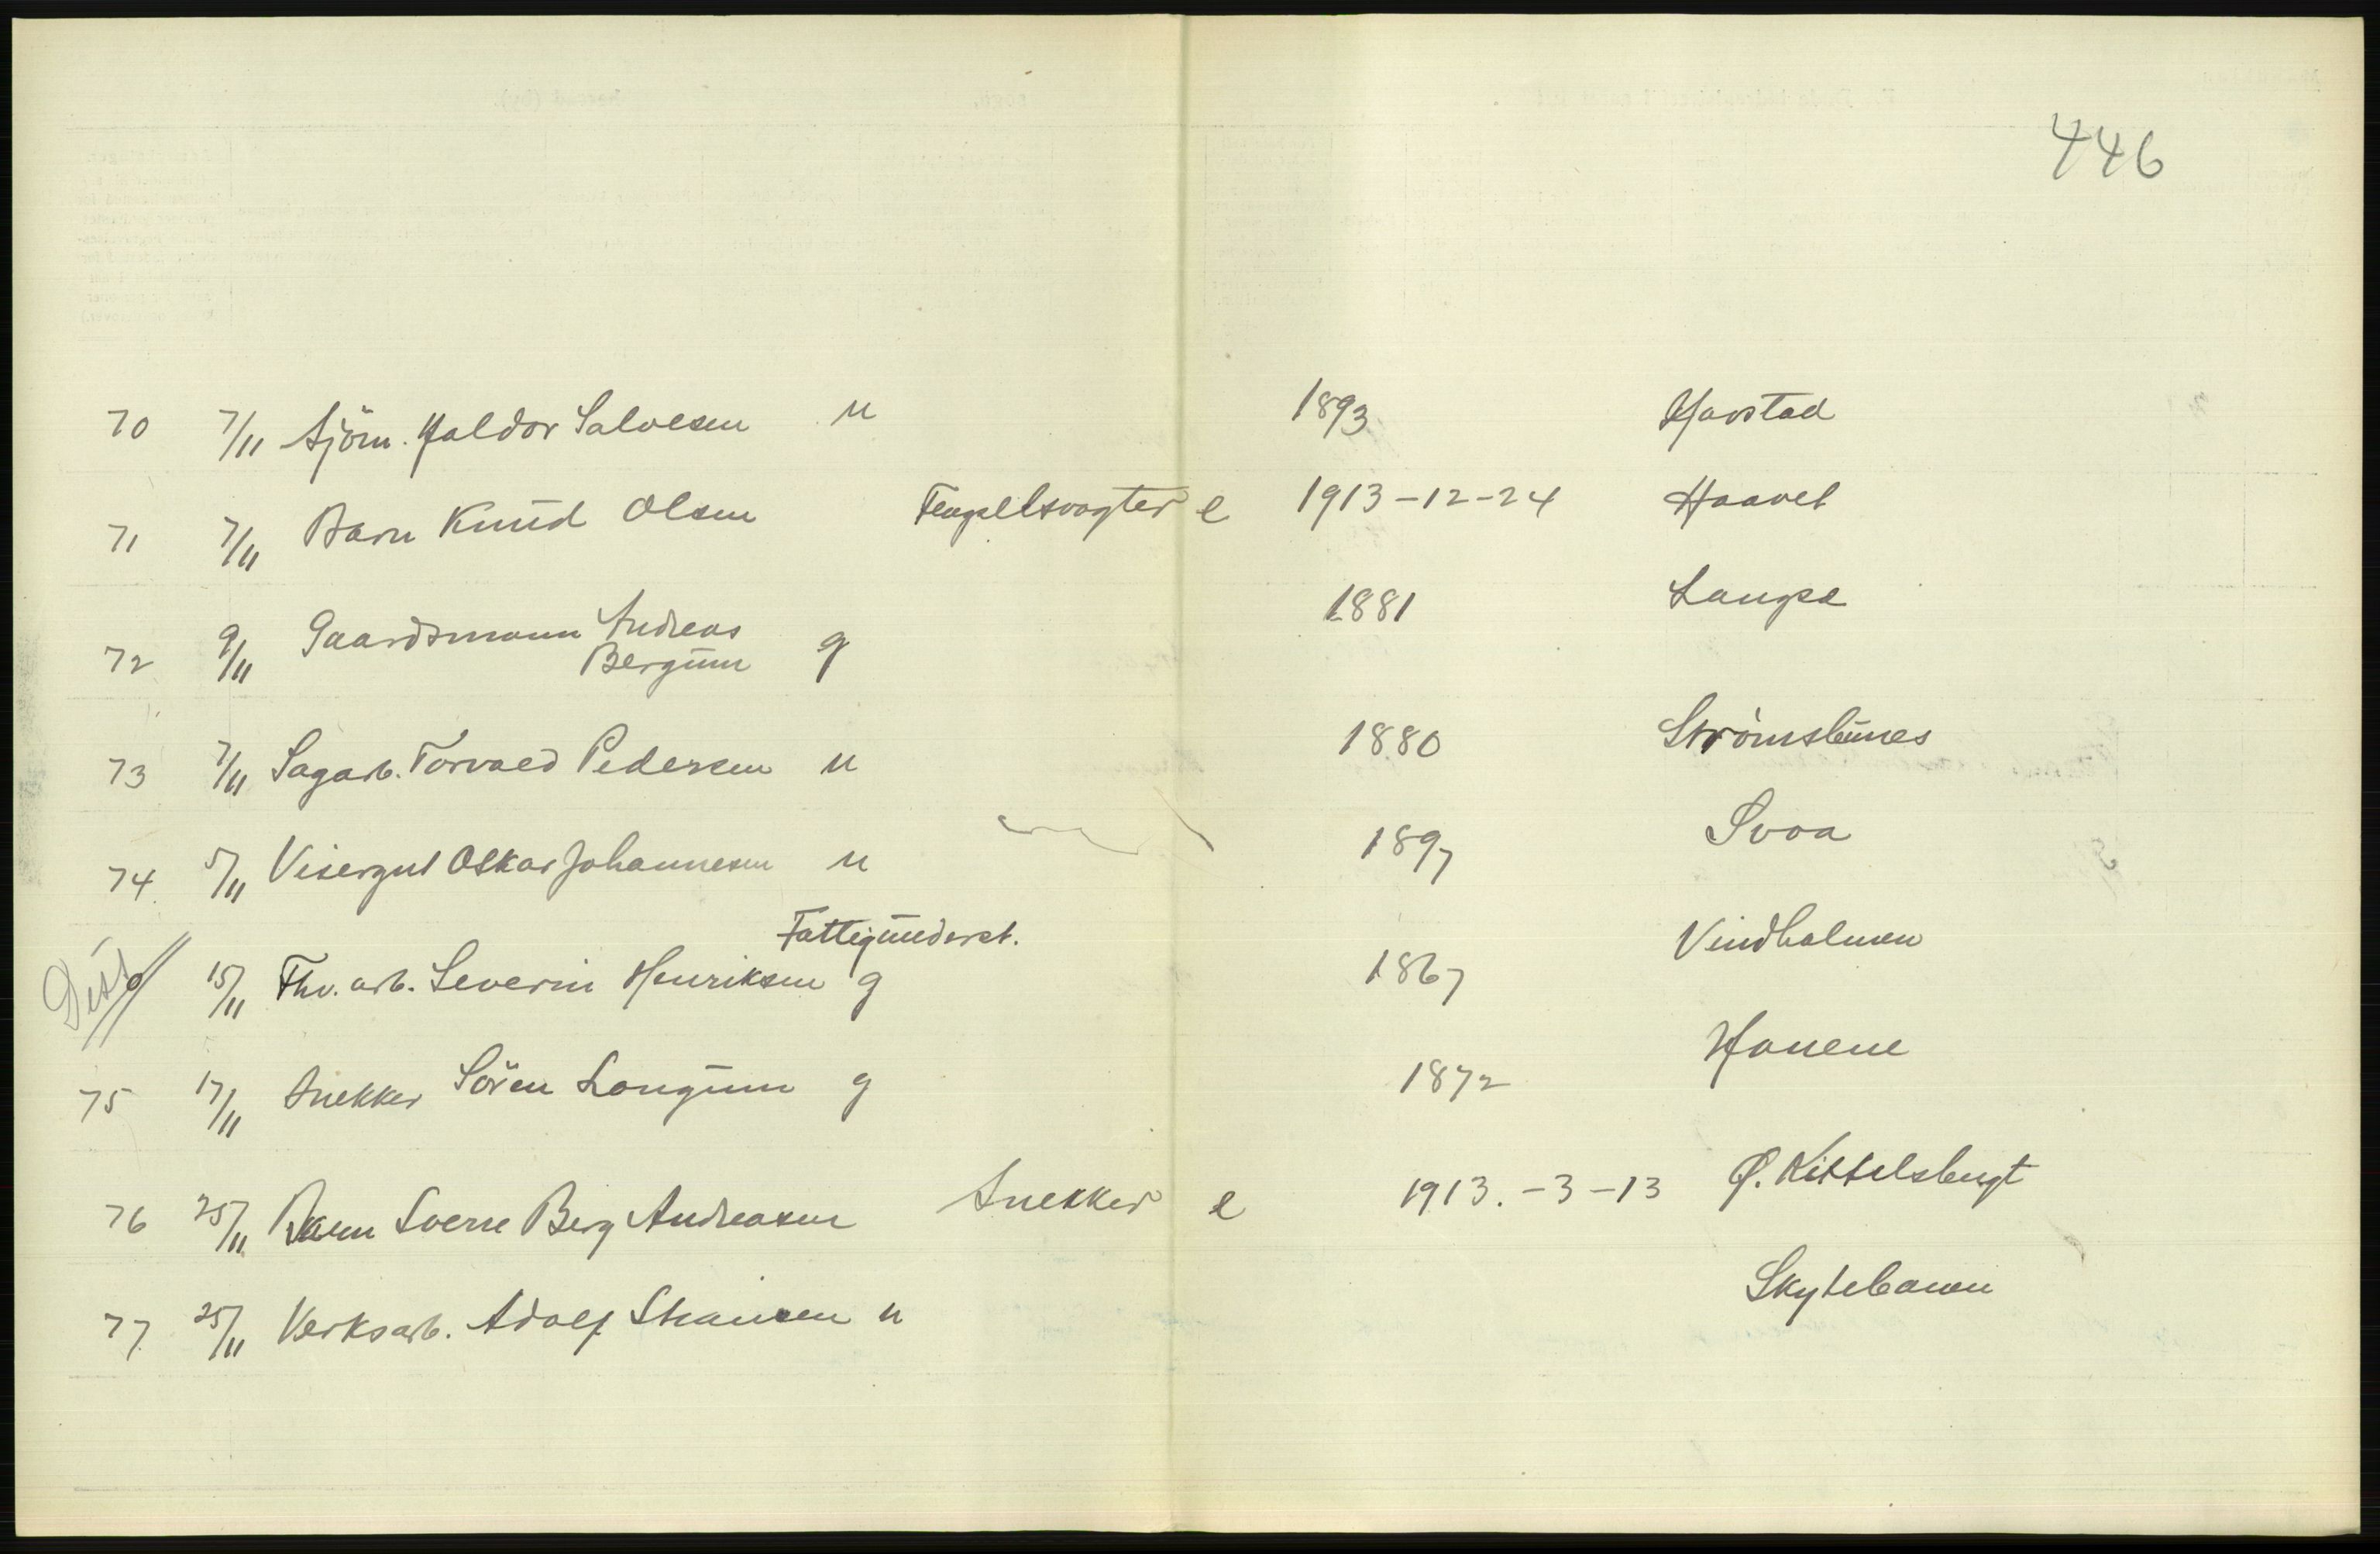 446
70 7/11 Sjöm. Haldor Salvesen u 1893 Harstad
71 7/11 Barn Knud Olsen Fengselsvogter e 1913-12-24 Haavet
72 9/11 Gaardsmann Andreas Bergum g 1881 Langsæ
73 7/11 Sagarb. Torvald Pedersen u 1880 Strømsbunes
74 5/11 Visergut Oskar Johannesen u 1897 Svoa
Fattigunderst.
15/11 Fhv. arb. Severin Henriksen g 1867 Vindholmen
75 17/11 Snekker Sören Longum g 1872 Hanene
76 25/11 Barn Sverre Berg Andreasen Snekker e 1913.-3-13 Ø. Kittelsbugt
77 25/11 Verksarb. Adolf u Skytebanen